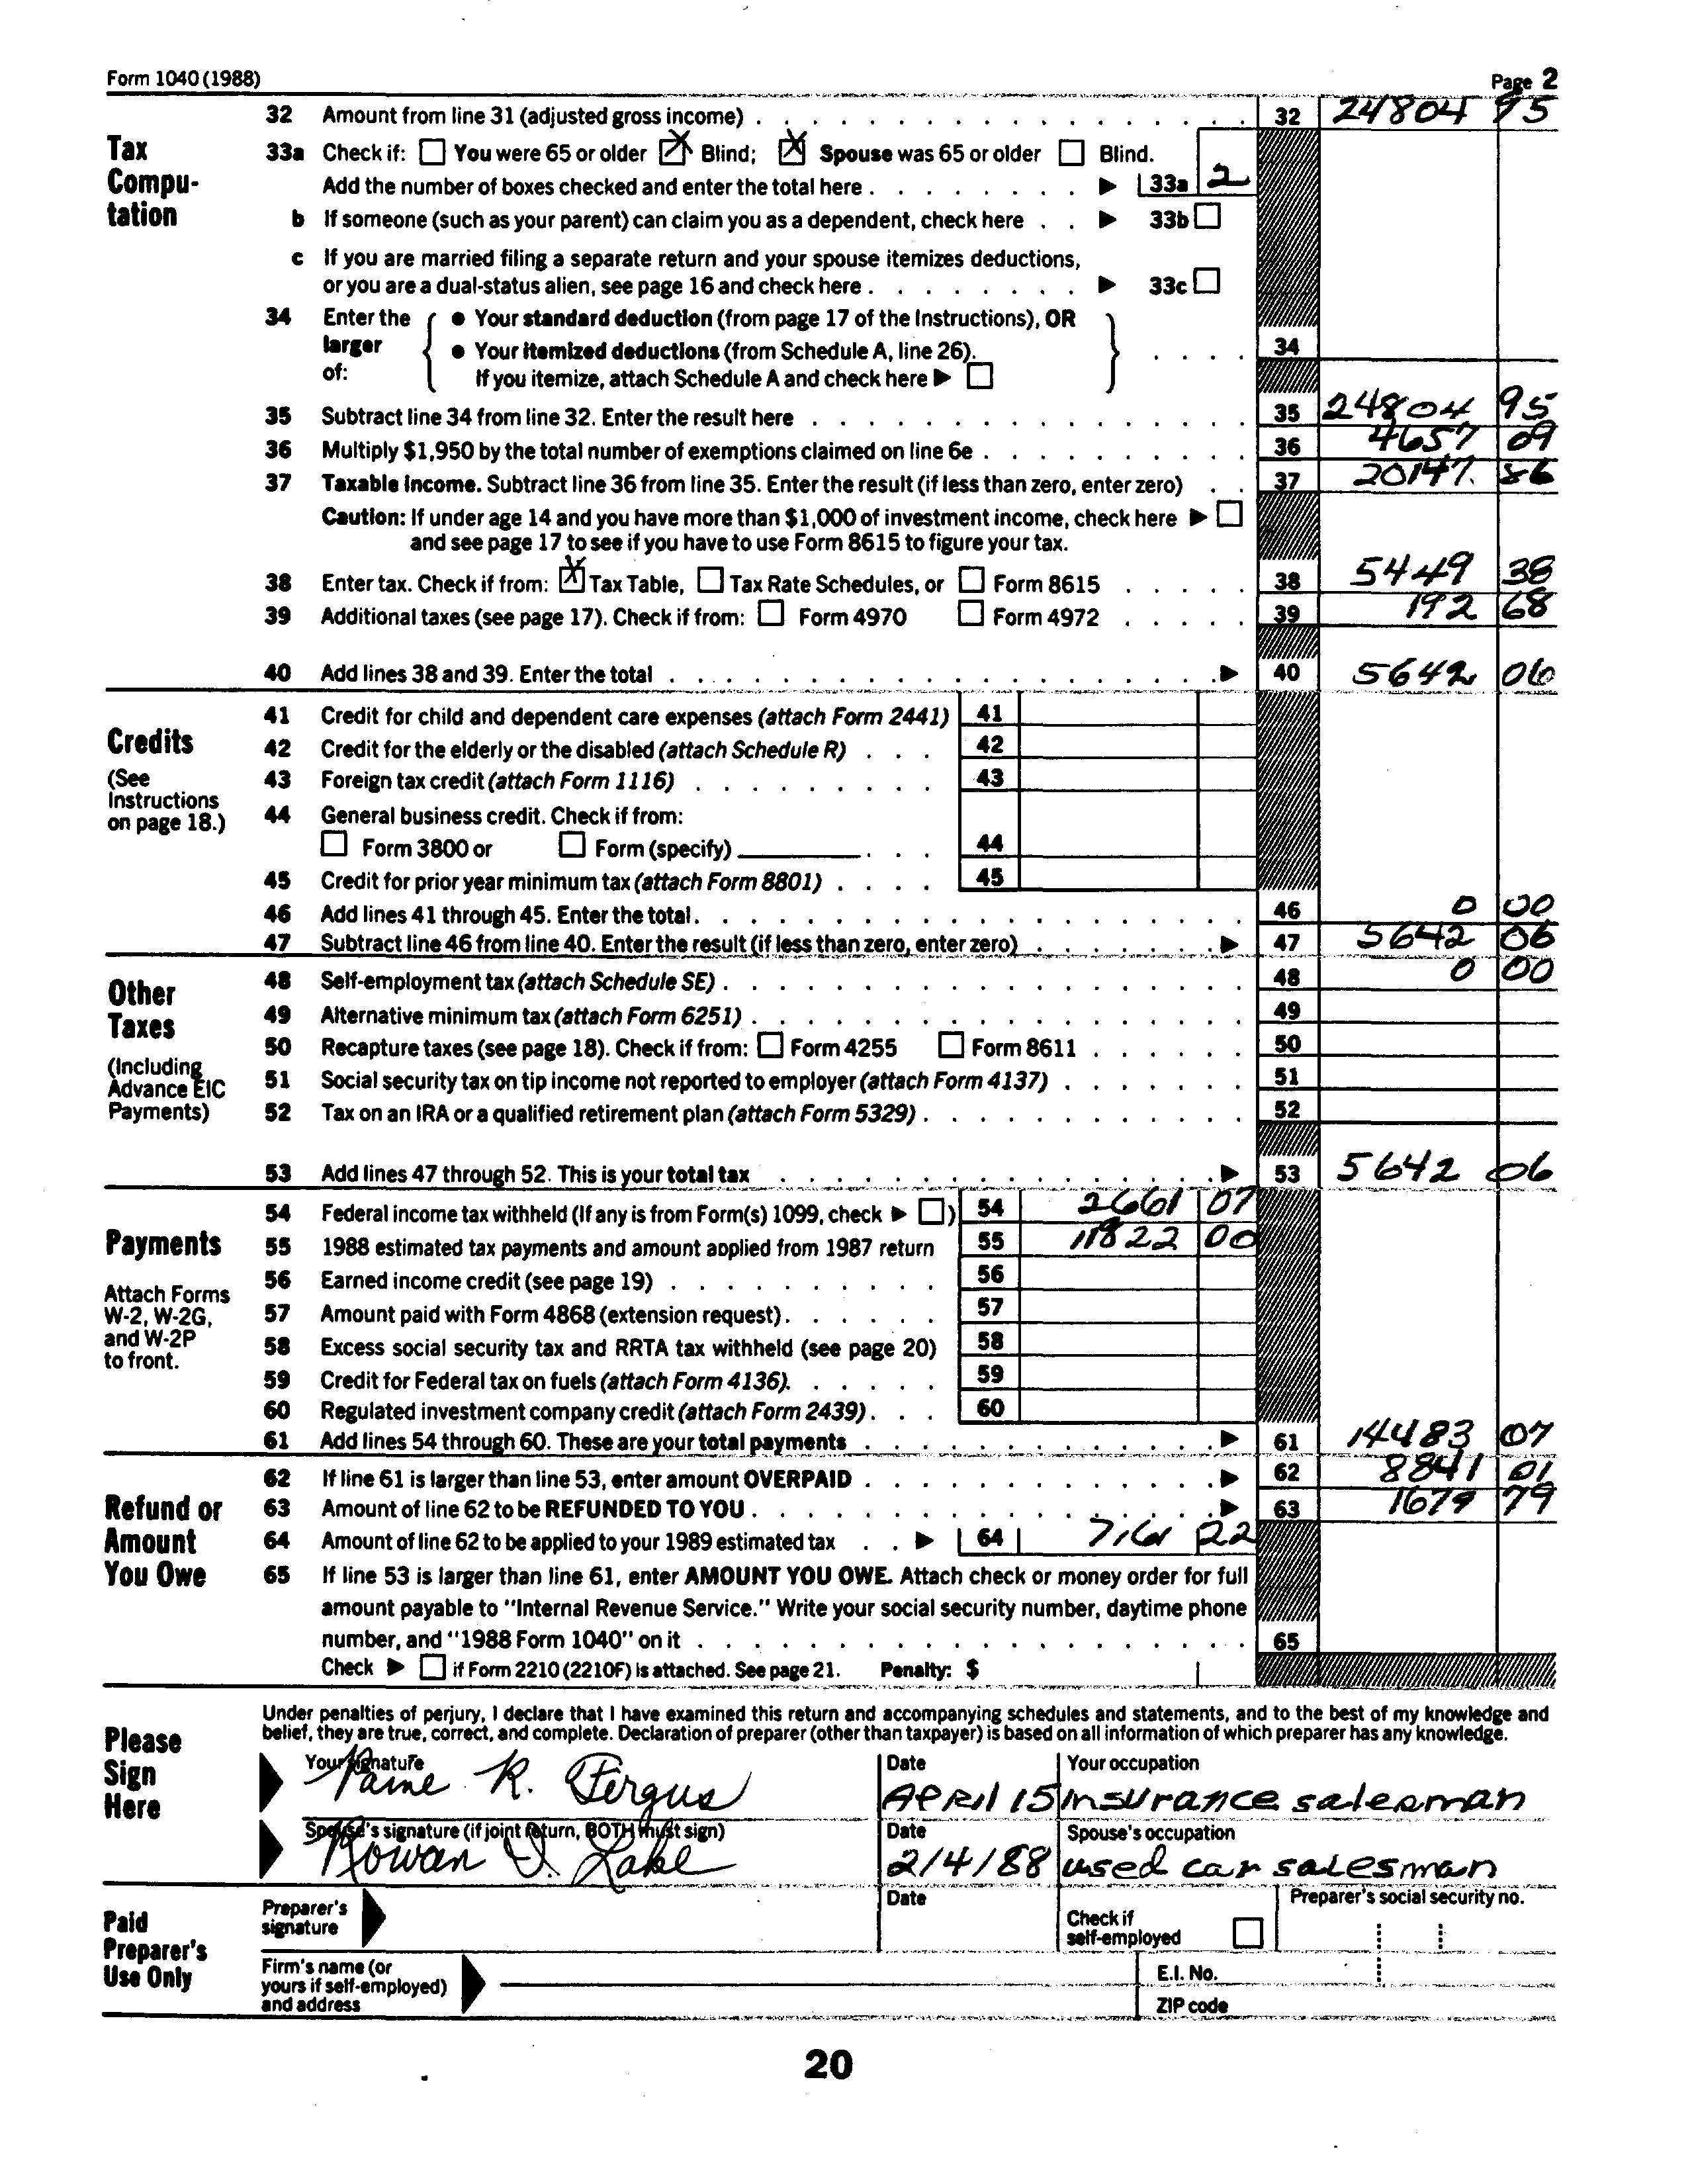 Form 1040 (1988) Page 2
32 Amount from line 31 (adjusted gross income) 32 24804 95
Tax Compu- tation
33a Check if: ☐ You were 65 or older ☒ Blind; ☒ Spouse was 65 or older ☐ Blind.
Add the number of boxes checked and enter the total here ▶ 33a 2
b If someone (such as your parent) can claim you as a dependent, check here ▶ 33b ☐
c If you are married filing a separate return and your spouse itemizes deductions,
or you are a dual-status alien, see page 16 and check here ▶ 33c ☐
34 Enter the larger of:
● Your standard deduction (from page 17 of the Instructions), OR
● Your itemized deductions (from Schedule A, line 26).
If you itemize, attach Schedule A and check here ▶ ☐
34
35 Subtract line 34 from line 32. Enter the result here 35 24804 95
36 Multiply $1,950 by the total number of exemptions claimed on line 6e 36 4657 09
37 Taxable income. Subtract line 36 from line 35. Enter the result (if less than zero, enter zero) 37 20147. 86
Caution: If under age 14 and you have more than $1,000 of investment income, check here ▶ ☐
and see page 17 to see if you have to use Form 8615 to figure your tax.
38 Enter tax. Check if from: ☒ Tax Table, ☐ Tax Rate Schedules, or ☐ Form 8615 38 5449 38
39 Additional taxes (see page 17). Check if from: ☐ Form 4970 ☐ Form 4972 39 192 68
40 Add lines 38 and 39. Enter the total ▶ 40 5642 06
Credits
(See Instructions on page 18.)
41 Credit for child and dependent care expenses (attach Form 2441) 41
42 Credit for the elderly or the disabled (attach Schedule R) 42
43 Foreign tax credit (attach Form 1116) 43
44 General business credit. Check if from:
☐ Form 3800 or ☐ Form (specify) 44
45 Credit for prior year minimum tax (attach Form 8801) 45
46 Add lines 41 through 45. Enter the total 46 0 00
47 Subtract line 46 from line 40. Enter the result (if less than zero, enter zero) ▶ 47 5642 06
Other Taxes
(Including Advance EIC Payments)
48 Self-employment tax (attach Schedule SE) 48 0 00
49 Alternative minimum tax (attach Form 6251) 49
50 Recapture taxes (see page 18). Check if from: ☐ Form 4255 ☐ Form 8611 50
51 Social security tax on tip income not reported to employer (attach Form 4137) 51
52 Tax on an IRA or a qualified retirement plan (attach Form 5329) 52
53 Add lines 47 through 52. This is your total tax ▶ 53 5642 06
Payments
Attach Forms W-2, W-2G, and W-2P to front.
54 Federal income tax withheld (If any is from Form(s) 1099, check ▶ ☐) 54 2661 07
55 1988 estimated tax payments and amount applied from 1987 return 55 11822 00
56 Earned income credit (see page 19) 56
57 Amount paid with Form 4868 (extension request) 57
58 Excess social security tax and RRTA tax withheld (see page 20) 58
59 Credit for Federal tax on fuels (attach Form 4136) 59
60 Regulated investment company credit (attach Form 2439) 60
61 Add lines 54 through 60. These are your total payments ▶ 61 14483 07
Refund or Amount You Owe
62 If line 61 is larger than line 53, enter amount OVERPAID ▶ 62 8841 01
63 Amount of line 62 to be REFUNDED TO YOU ▶ 63 1679 79
64 Amount of line 62 to be applied to your 1989 estimated tax ▶ 64 7161 22
65 If line 53 is larger than line 61, enter AMOUNT YOU OWE. Attach check or money order for full
amount payable to "Internal Revenue Service." Write your social security number, daytime phone
number, and "1988 Form 1040" on it 65
Check ▶ ☐ if Form 2210 (2210F) is attached. See page 21. Penalty: $
Please Sign Here
Under penalties of perjury, I declare that I have examined this return and accompanying schedules and statements, and to the best of my knowledge and
belief, they are true, correct, and complete. Declaration of preparer (other than taxpayer) is based on all information of which preparer has any knowledge.
Your signature Date Your occupation
R. Fergus APRIl 15 insurance salesman
Spouse's signature (if joint return, BOTH must sign) Date Spouse's occupation
Rowan Lake 2/4/88 used car salesman
Paid Preparer's Use Only
Preparer's signature Date Check if self-employed ☐ Preparer's social security no.
Firm's name (or yours if self-employed) and address E.I. No.
ZIP code
20